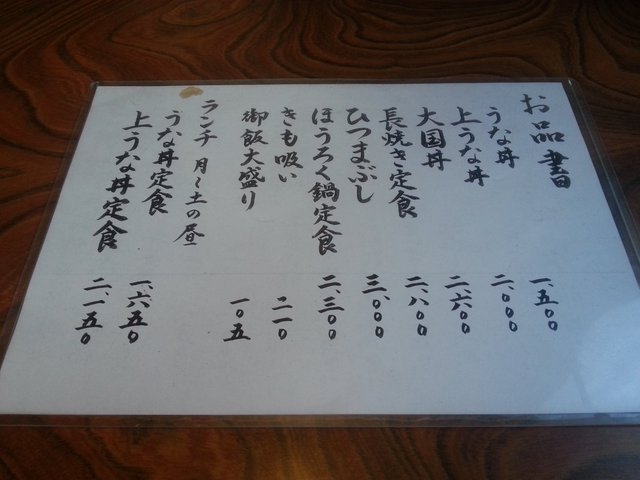 お品書
うな丼 一、五〇〇
上うな丼 二、〇〇〇
大国丼 二、六〇〇
長焼き定食 二、八〇〇
ひつまぶし 三、〇〇〇
ほうろく鍋定食 二、三〇〇
きも吸い 二一〇
御飯大盛り 一〇五
ランチ 月〜土の昼
うな丼定食 一、六五〇
上うな丼定食 二、一五〇